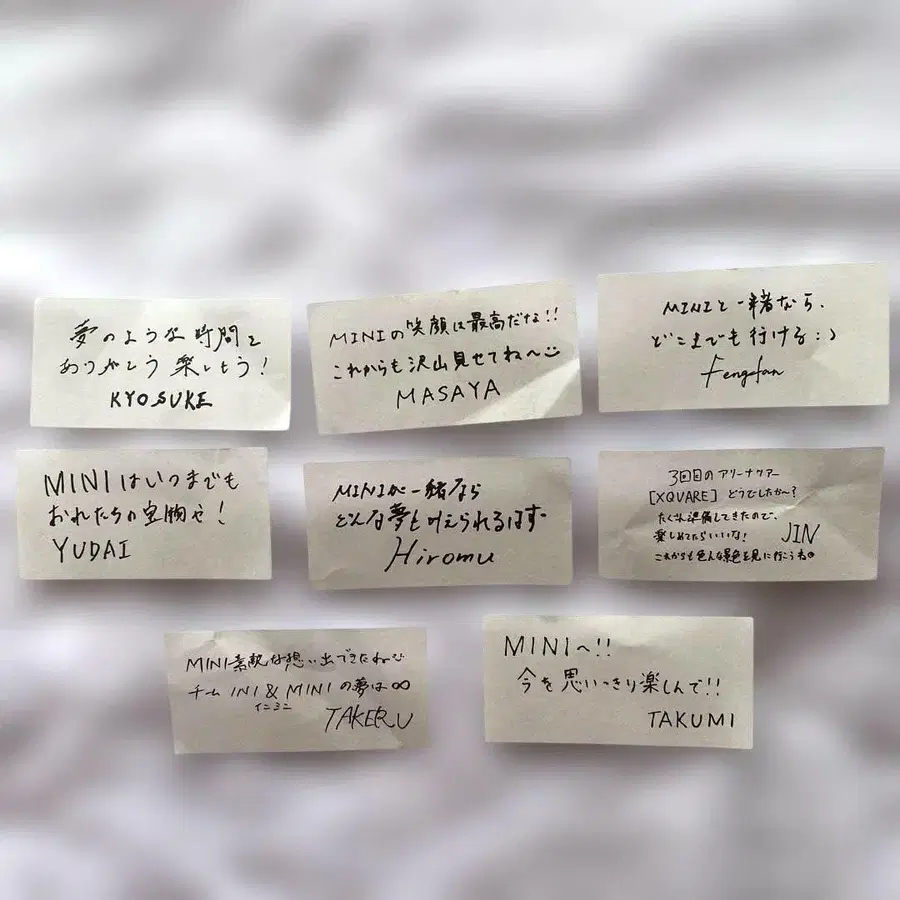 夢のような時間を
ありがとう 楽しもう!
KYOSUKE
MINIの笑顔は最高だな!!
これからも沢山見せてね〜
MASAYA
MINIと一緒なら、
どこまでも行ける:)
Fengfan
MINIはいつまでも
おれたちの宝物や!
YUDAI
MINIが一緒なら
どんな夢も叶えられるはず
Hiromu
3回目のアリーナツアー
[XQUARE] どうでしたか〜?
たくさん準備してきたので、
楽しめてたらいいな!
これからも色んな景色を見に行こうね
JIN
MINI素敵な想い出できたね
チーム INI & MINI の夢は∞
イニミニ
TAKERU
MINIへ!!
今を思いっきり楽しんで!!
TAKUMI